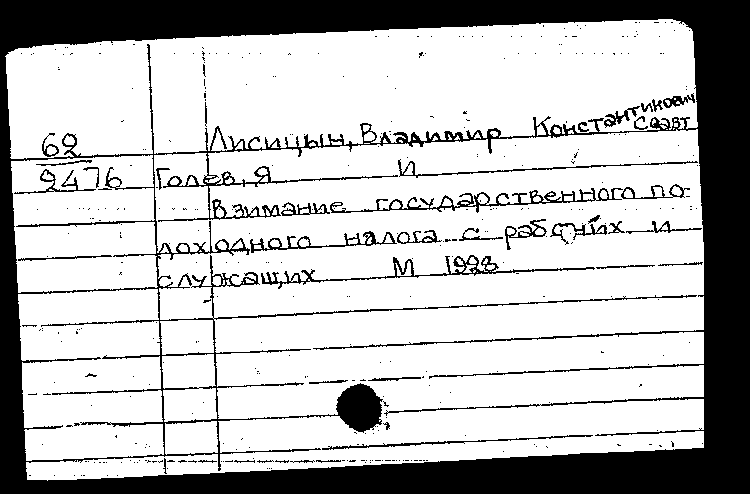 62 Лисицын, Владимир Константинович соавт
2476 Голев, Я И
Взимание государственного по-
доходного налога с рабочих и
служащих М 1928